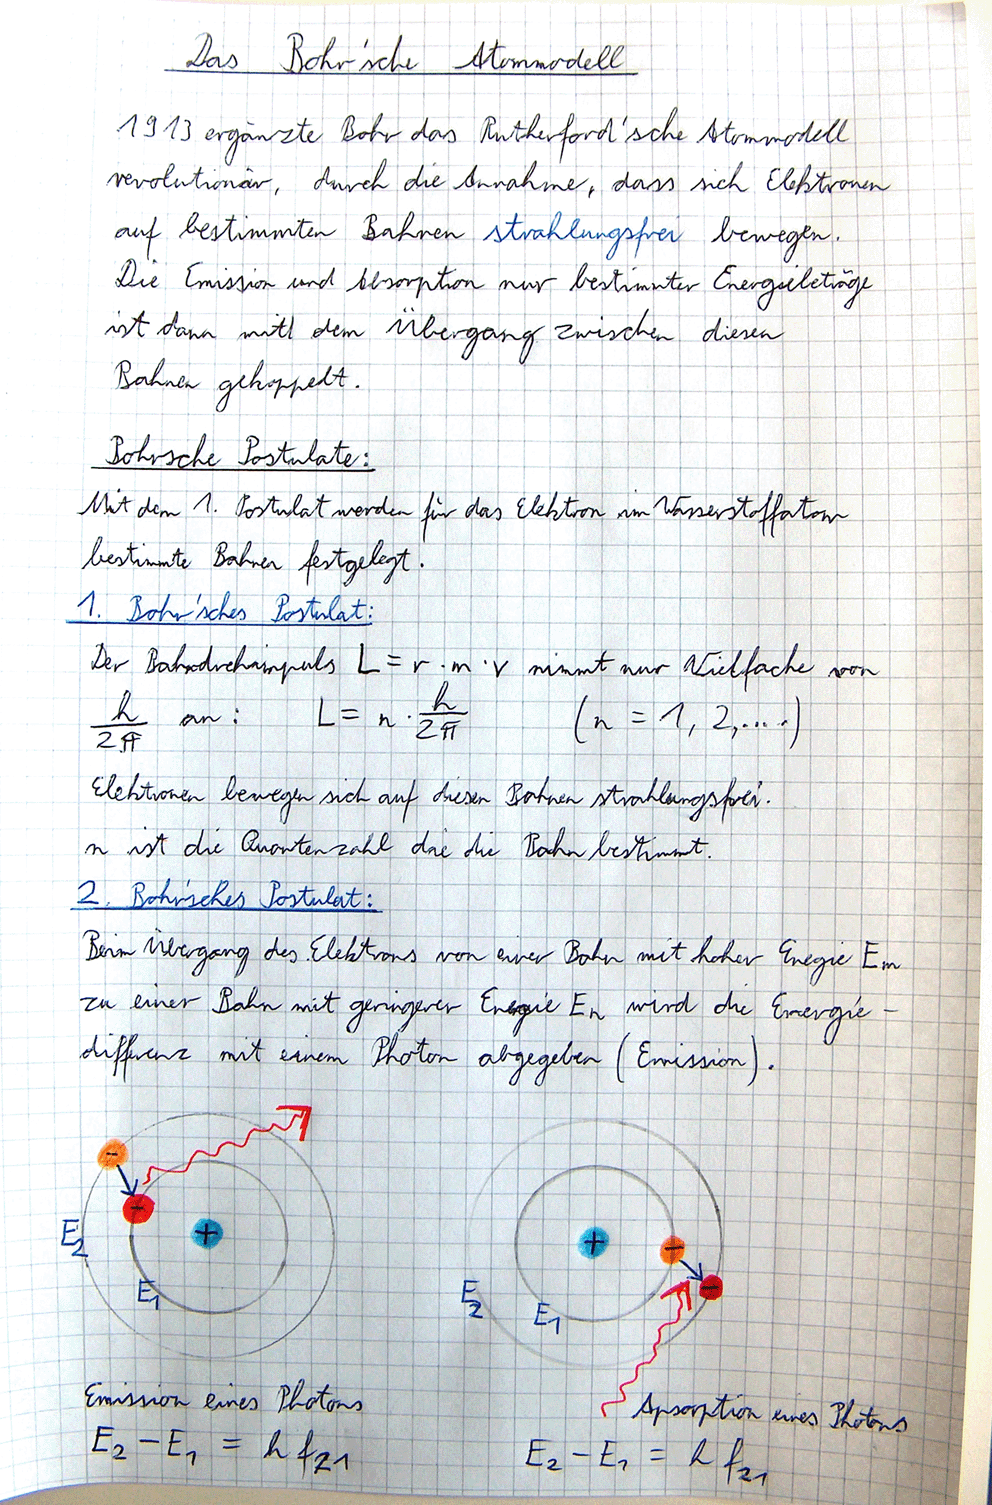 Das Bohr'sche Atommodell
1913 ergänzte Bohr das Rutherford'sche Atommodell
revolutionär, durch die Annahme, dass sich Elektronen
auf bestimmten Bahnen strahlungsfrei bewegen.
Die Emission und Absorption nur bestimmter Energiebeträge
ist dann mitl dem Übergang zwischen diesen
Bahnen gekoppelt.
Bohrsche Postulate:
Mit dem 1. Postulat werden für das Elektron im Wasserstoffatom
bestimmte Bahnen festgelegt.
1. Bohr'sches Postulat:
Der Bahndrehimpuls L = r · m · v nimmt nur Vielfache von
h/2π an: L = n · h/2π (n = 1, 2, ....)
Elektronen bewegen sich auf diesen Bahnen strahlungsfrei.
n ist die Quantenzahl die die Bahn bestimmt.
2. Bohr'sches Postulat:
Beim Übergang des Elektrons von einer Bahn mit hoher Enegie Em
zu einer Bahn mit geringerer Energie En wird die Energie -
differenz mit einem Photon abgegeben (Emission).
- - +
E2
E1
+ - -
E2
E1
Emission eines Photons
E2 - E1 = h f21
Apsorption eines Photons
E2 - E1 = h f21